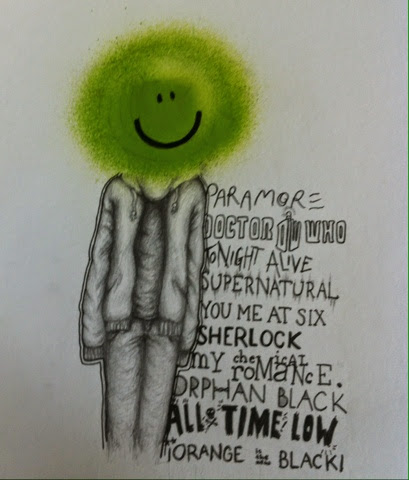 PARAMORE
DOCTOR DW WHO
TONIGHT ALIVE
SUPERNATURAL
YOU ME AT SIX
SHERLOCK
my chemical
romance.
ORPHAN BLACK
ALL TIME LOW
ORANGE is the BLACK!